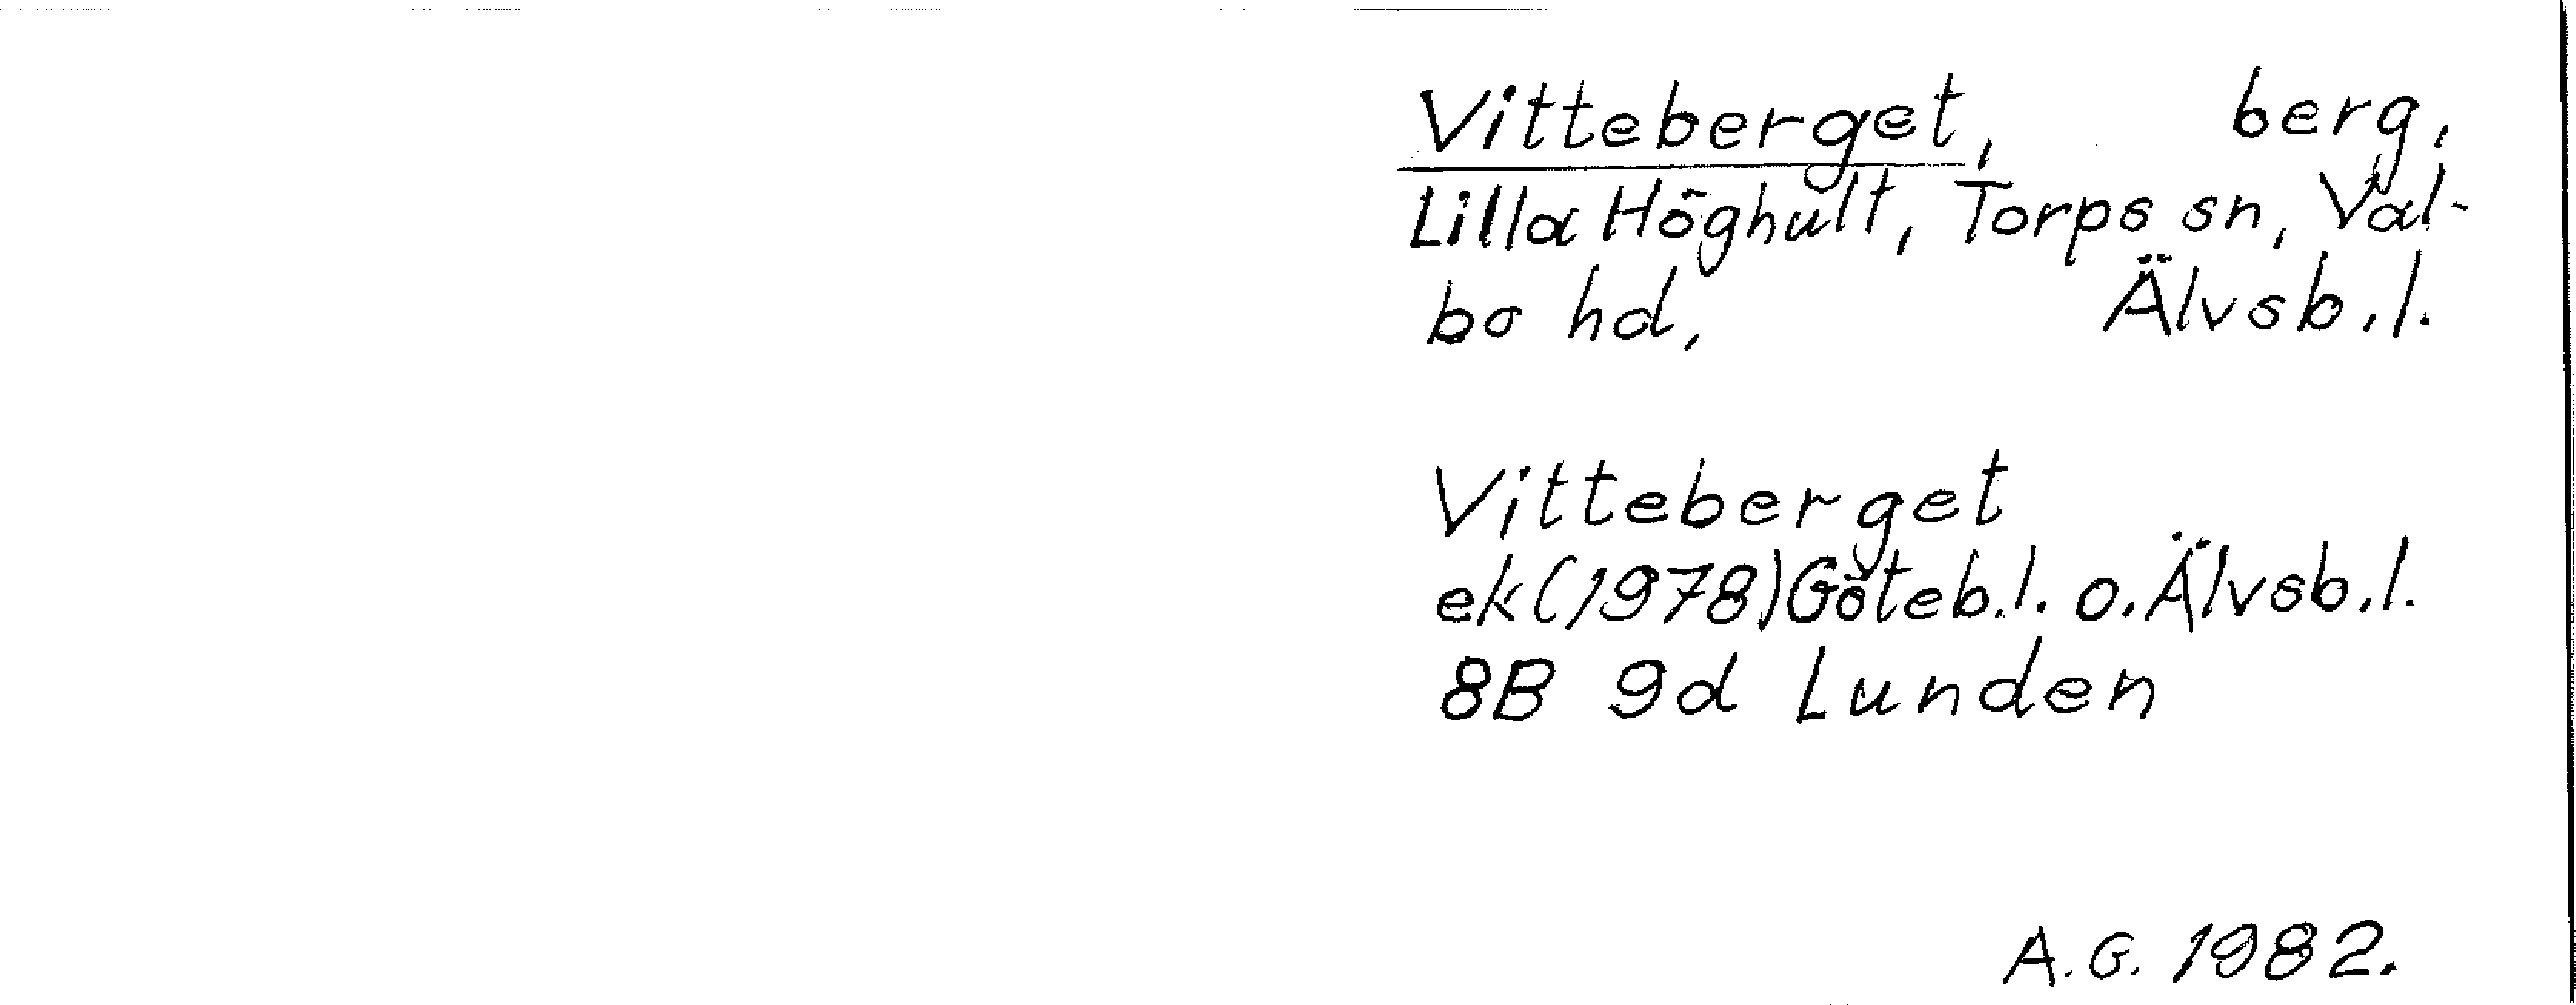 Vitteberget, berg,
Lilla Höghult, Torps sn, Val-
bo hd, Älvsb.l.
Vitteberget
ek(1978)Göteb.l. o. Älvsb.l.
8B 9d Lunden
A.G. 1982.